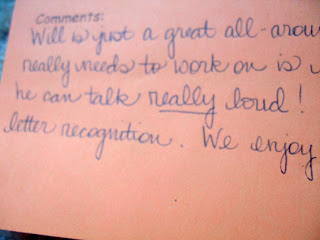 Comments:
Will is just a great all-arou
really needs to work on is
he can talk really loud!
letter recognition. We enjoy